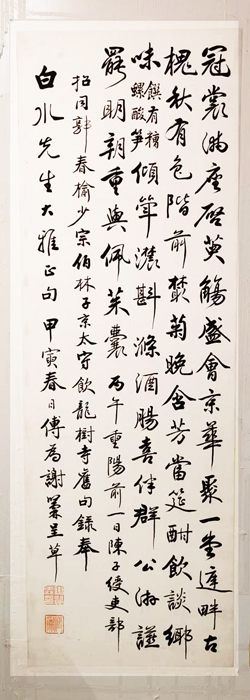 冠裳滿座啓英觴盛會京華聚一堂遶畔古
槐秋有色階前叢菊晚含芳當筵酣飲談鄉
味饌有糟螺酸笋傾耳濃斟滌酒腸喜伴群公游讌
罷明朝重與佩茱囊丙午重陽前一日陳子綬吏部
招同郭春榆少宗伯林子京太守飲龍樹寺舊句錄奉
白水先生大雅正句甲寅春日傅為謝呈草